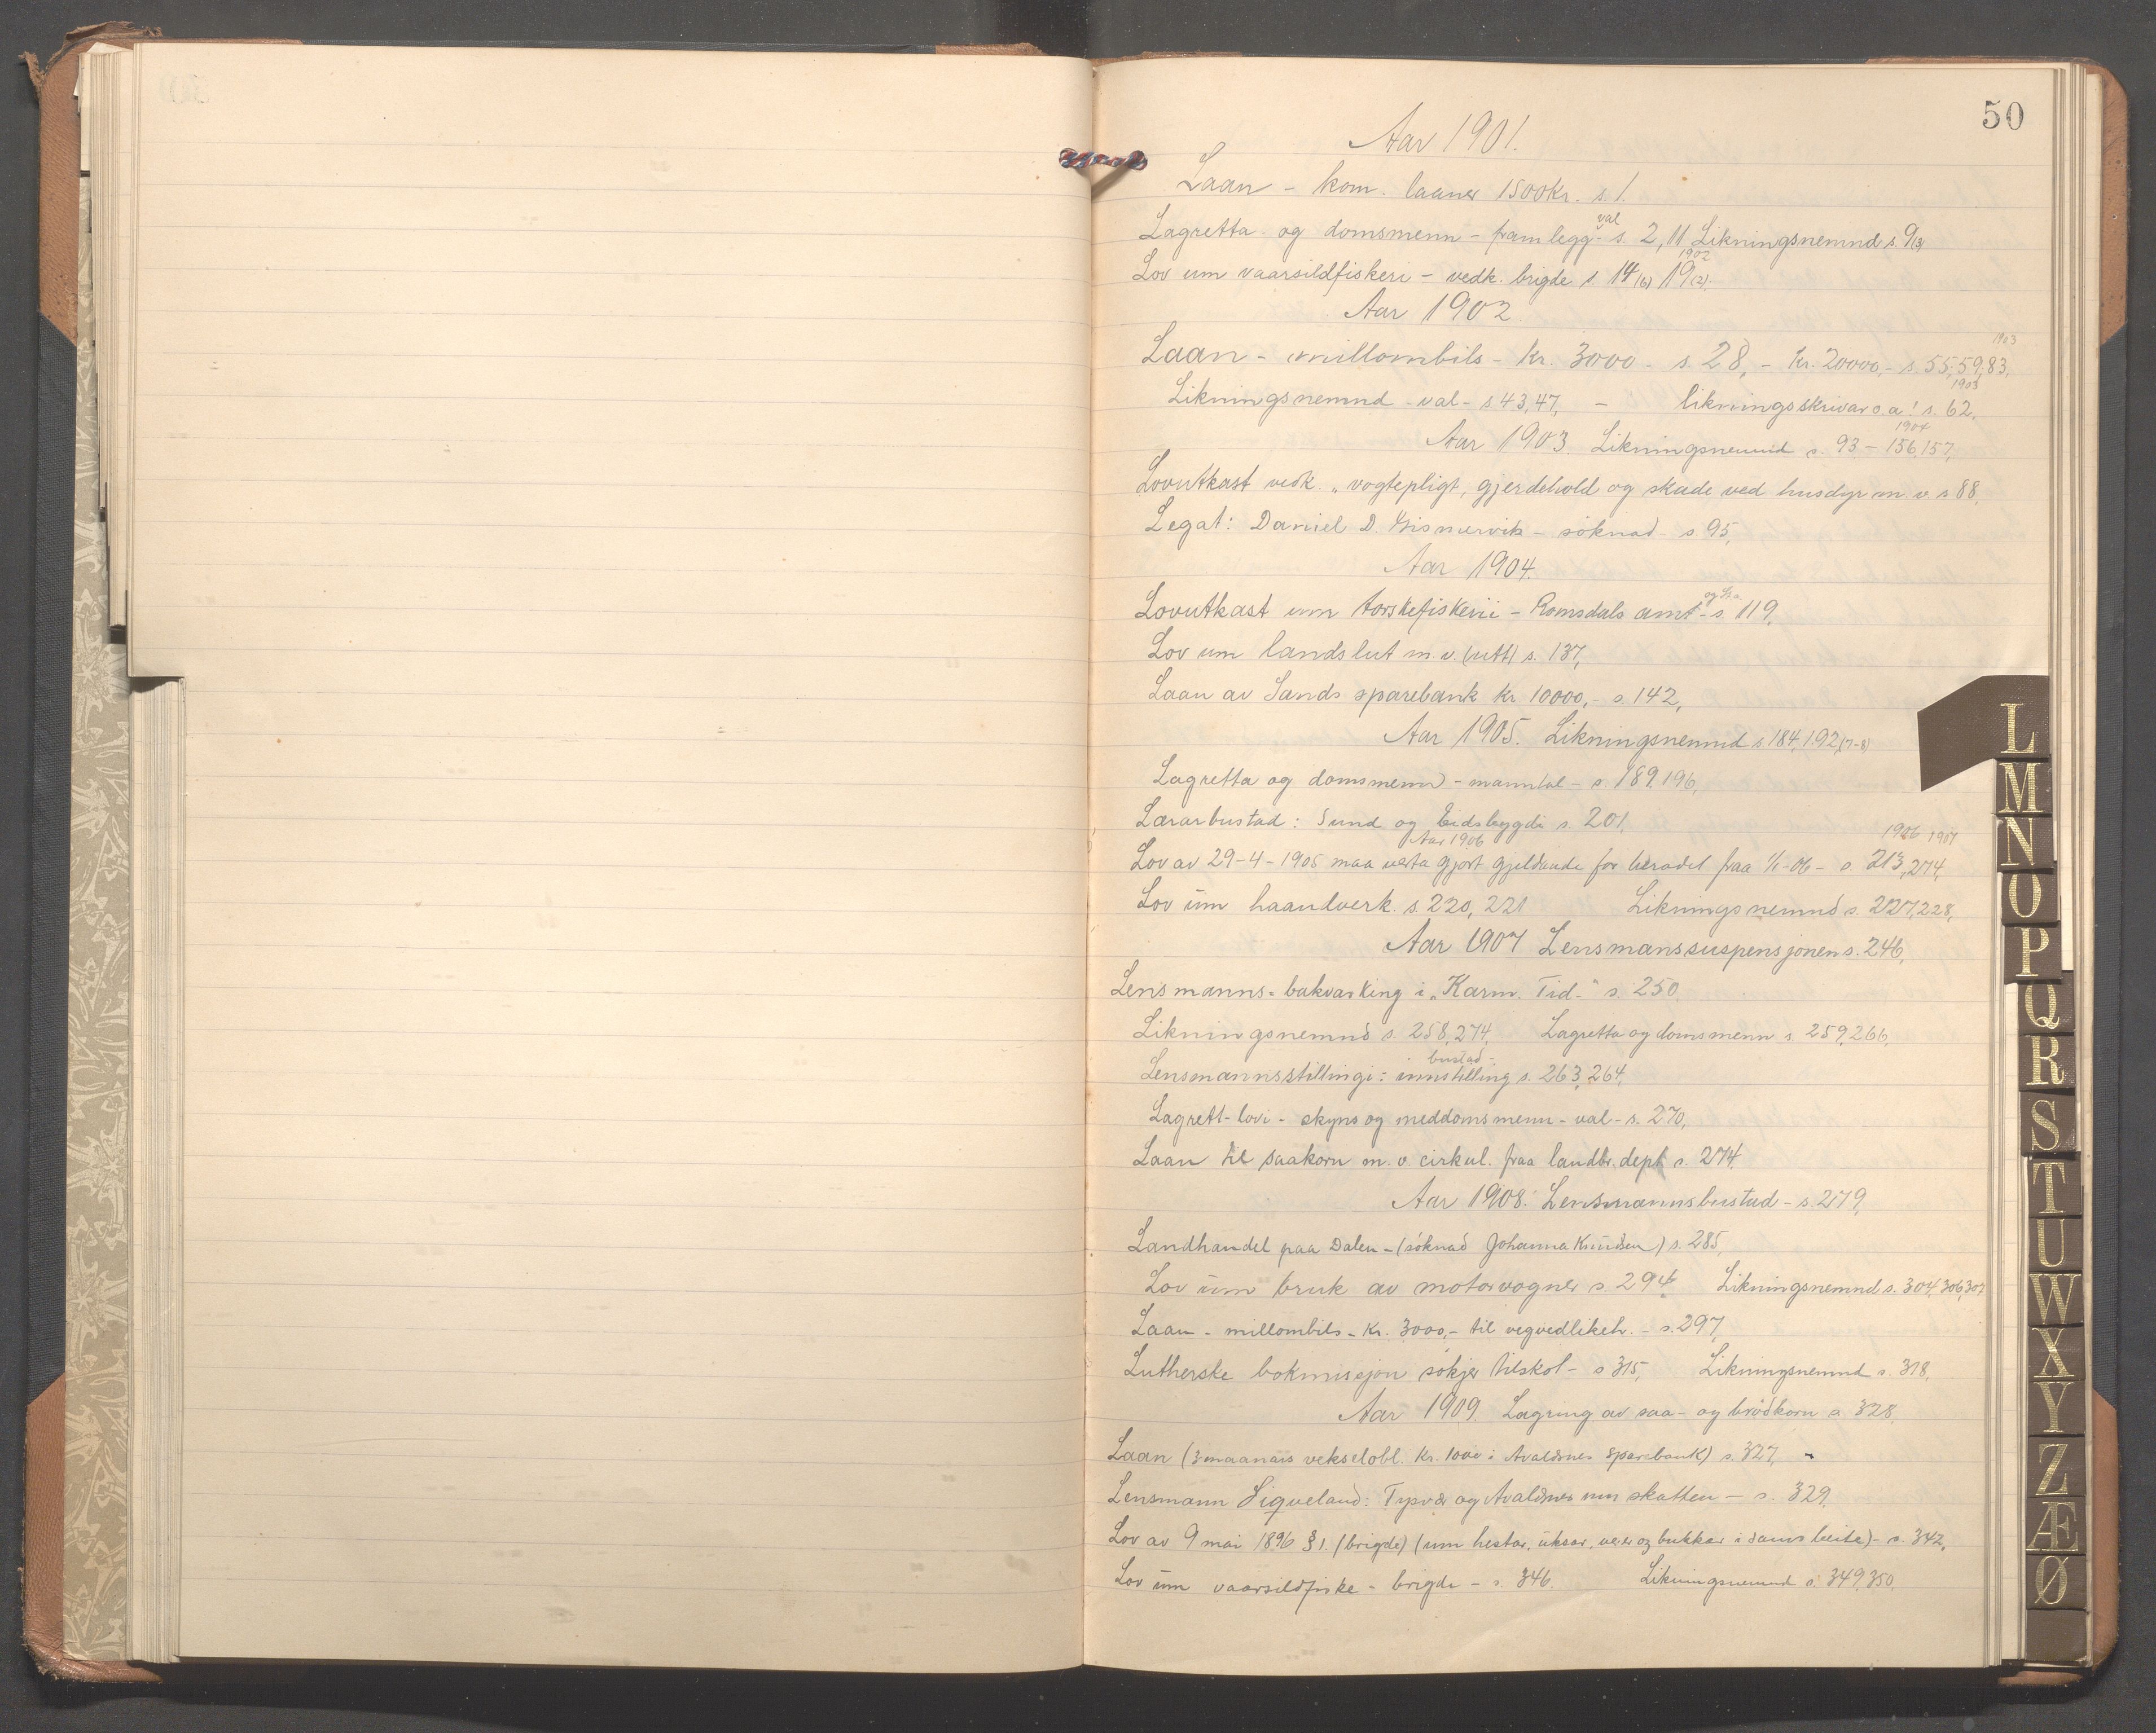 50
Aar 1901.
Laan - kom. laaner 1500 Kr. s. 1.
val
Lagretta- og domsmenn - framlegg - s. 2, 11, Likningsnemnd s. 9(3)
1902
Lov um vaarsildfiskeri - vedk. brigde s. 14(6) 19(2).
Aar 1902.
1903
Laan - millombils - Kr. 3000 - s. 28, - Kr. 20000,- s. 55, 59, 83,
1903
Likningsnemnd - val - s. 43, 47, - likningsskrivar o. a! s. 62,
1904
Aar 1903. Likningsnemnd s. 93 - 156, 157,
Lovutkast vedk. „vogtepligt, gjerdehold og skade ved husdyr m. v. s 88,
Legat: Daniel D. - söknad - s. 95,
Aar 1904.
Lovutkast um torskefiskeri - Romsdals amt - s. 119,
Lov um landslut m. v. (utt) s. 137,
Laan av Sands sparebank Kr 10000,- s. 142,
Aar 1905. Likningsnemnd s. 184, 192, (7-8)
Lagretta og domsmenn - manntal - s. 189, 196,
Lærarbustad: Sund og Eidsbygdi s. 201,
Aar 1906 1906 1907
Lov av 29-4-1905 maa verta gjort gjeldande for heradet fraa 1/1-06 - s. 213, 274,
Lov um haandverk s. 220, 221 Likningsnemnd s. 227, 228,
Aar 1907 Lensmanssuspensjonen s. 246,
Lensmanns-bakvasking i „Karm. Tid.“ s. 250
Likningsnemnd s. 258, 274, Lagretta og domsmenn s. 259, 266,
bustad -
Lensmannsstillingi: innstilling s. 263, 264,
Lagrett-lovi - skyns og meddomsmenn - val - s. 270,
Laan til saakorn m. v. cirkul. fraa landbr. dept s. 274,
Aar 1908. Lensmannsbustad - s. 279,
Landhandel paa Dalen - (söknad Johanna Knudsen) s. 285,
Lov um bruk av motorvogner s. 294, Likningsnemnd s. 304, 306, 307
Laan - millombils - Kr. 3000,- til vegvedlikeh. - s. 297,
Lutherske bokmissjon sökjer tilskot - s 315, Likningsnemnd s. 318,
Aar 1909. Lagring av saa- og brödkorn s. 328,
Laan (3 maanars vekselobl. Kr. 1000 i Avaldsnes Sparebank) s. 327,
Lensmann Siqveland: Tysvær og Avaldsnes um skatten - s. 329,
Lov av 9 mai 1896 § 1. (brigde) (um hestar, uksar, verer og bukkar i sams beite) - s. 342,
Lov um vaarsildfiske - brigde - s. 346. Likningsnemnd s. 349, 350,
L
M
N
O
P
Q
R
S
T
U
W
X
Y
Z
Æ
Ø